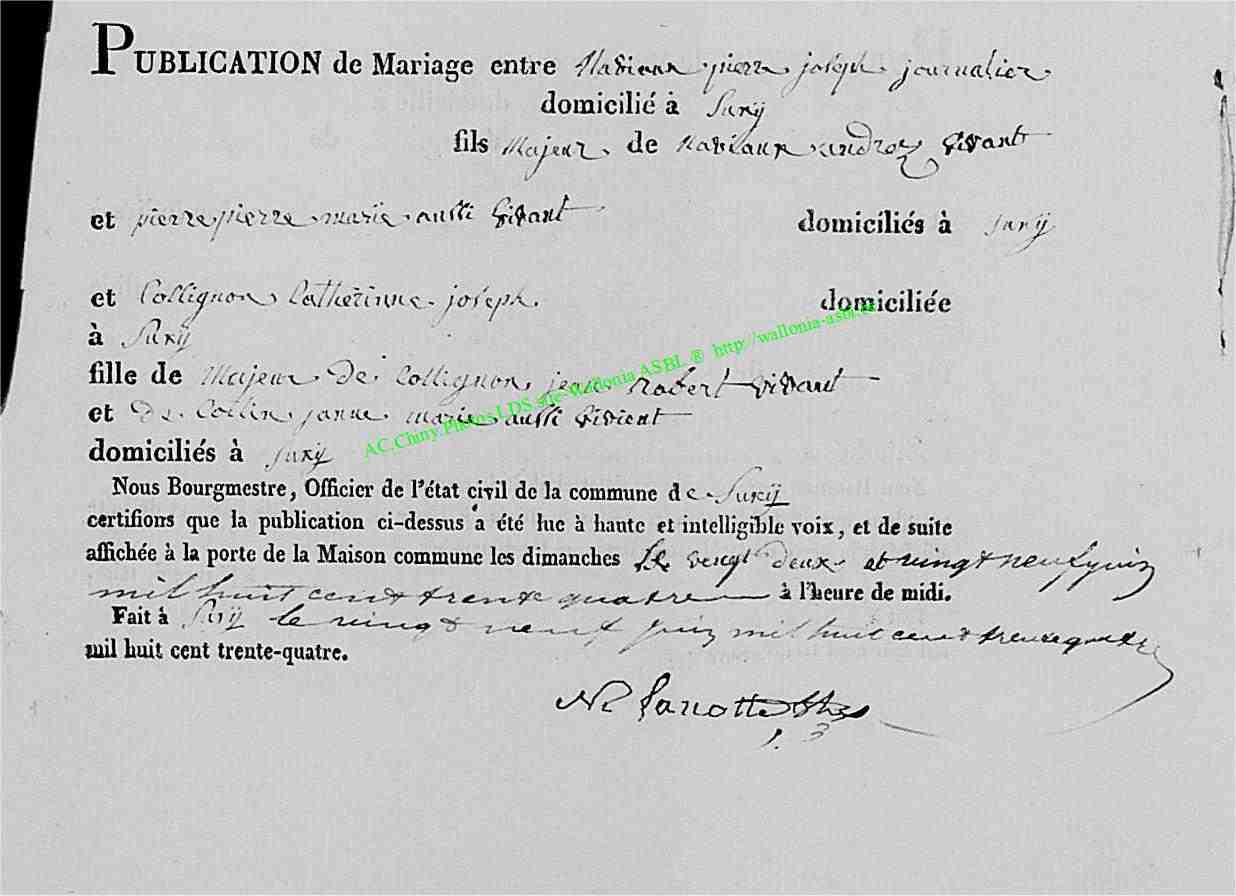 PUBLICATION de Mariage entre Naviaux pierre joseph journalier
domicilié à Suxÿ
fils Majeur de Naviaux andrez vivant
et pierre pierre marie aussi vivant domiciliés à Suxÿ
et Collignon Catherinne joseph domiciliée
à Suxÿ
fille de Majeur De Collignon jean Robert vivant
et De Collin janne marie aussi vivient
domiciliés à Suxÿ
Nous Bourgmestre, Officier de l'état civil de la commune de Suxÿ
certifions que la publication ci-dessus a été lue à haute et intelligible voix, et de suite
affichée à la porte de la Maison commune les dimanches le vengt deux et vingt neuf juin
mil huit cent trente quatre à l'heure de midi.
Fait à Suxÿ le vingt neuf juin mil huit cent trente quatre
mil huit cent trente-quatre.
AC.Chiny.Photos LDS site-Wallonia ASBL ® http://wallonia-asbl.be